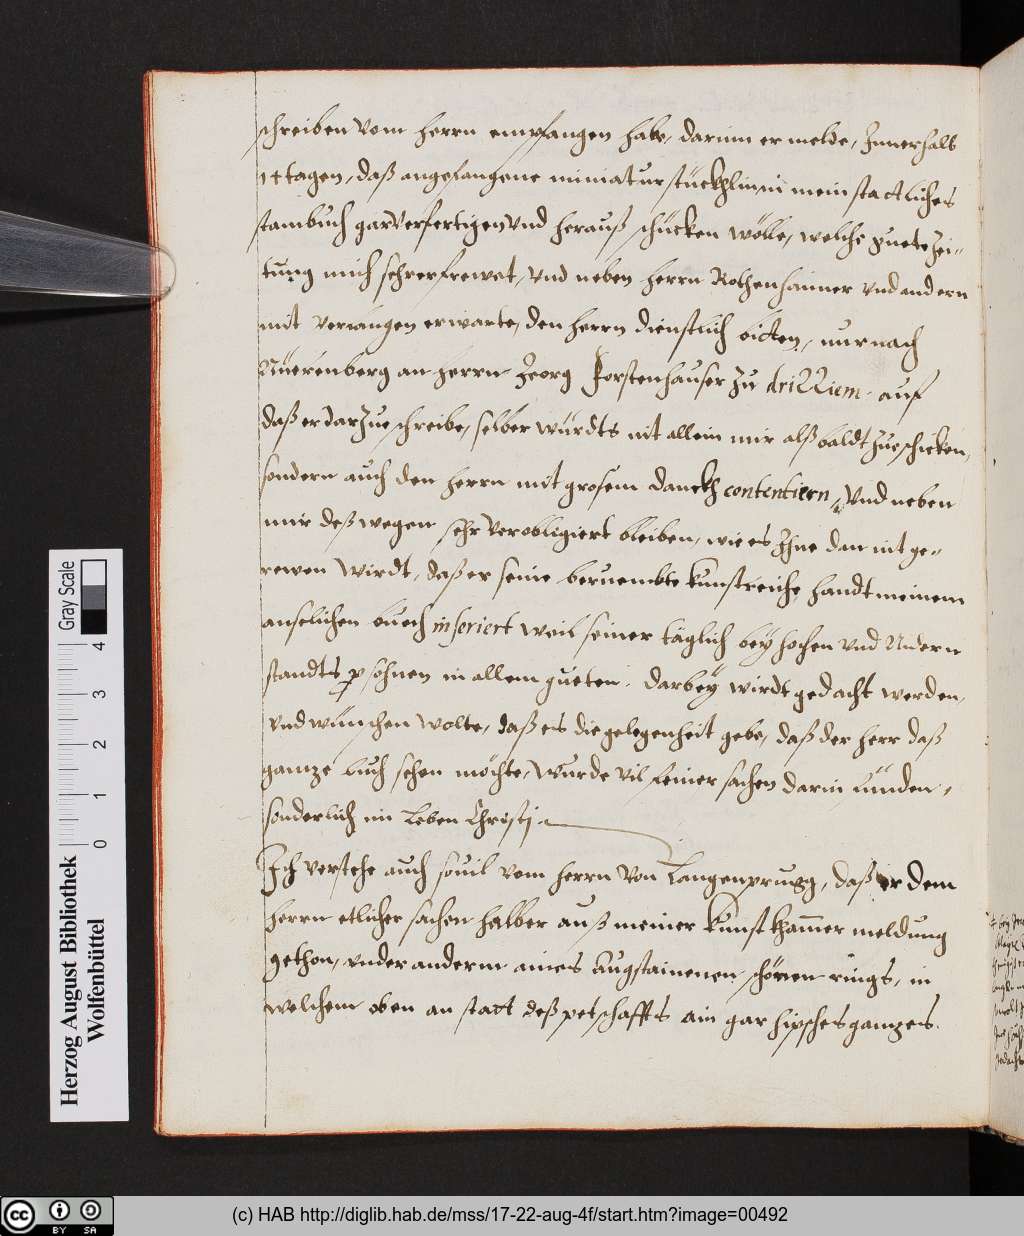 schreiben vom herrn empfangen habe, darinn er melde, Innerhalb
14 tagen, daß angefangene miniatur stückhlin, in mein stattliches
stambuch gar verfertigen, vnd herauß schücken wölle, welche guete Zei-
tung mich sehr erfrewet, vnd neben herrn Rothenhainer vnd andern
mit verlangen erwarte, den herrn dienstlich bitten, nur nach
Nüerenberg an herrn Georg Forstenhauser zu driZZiern. auf
daß er darzue schreibe, selber würdts nit allein mir alß baldt zueschicken,
sondern auch den herrn mit grosem danckh contentiern, vnd neben
mir deß wegen sehr verobligiert bleiben, wie es Ihne dan nit ge-
rewen wirdt, daß er seine beruembte kunstreiche handt meinem
ansehlichen buech inseriert weil seiner täglich bey hochen vnd Nidern
standts psohnen in allem gueten. darbey wirdt gedacht werden,
vnd wünschen wolte, daß es die gelegenheit gebe, daß der herr daß
gantze buch sehen möchte, wurde vil feiner sachen darin fünden,
sonderlich im Leben Christj.
Ich verstehe auch souil vom herrn von Langenprugg, daß er dem
herrn etlicher sachen halber auß meiner kunst khamer meldung
gethon, vnder anderm aines Augstainenen schönen rings, in
welchem oben an statt deß petschaffts ain gar hipsches gantzes.
Herzog August Bibliothek
Wolfenbüttel
Gray Scale
0 1 2 3 4
cc BY SA
(c) HAB http://diglib.hab.de/mss/17-22-aug-4f/start.htm?image=00492